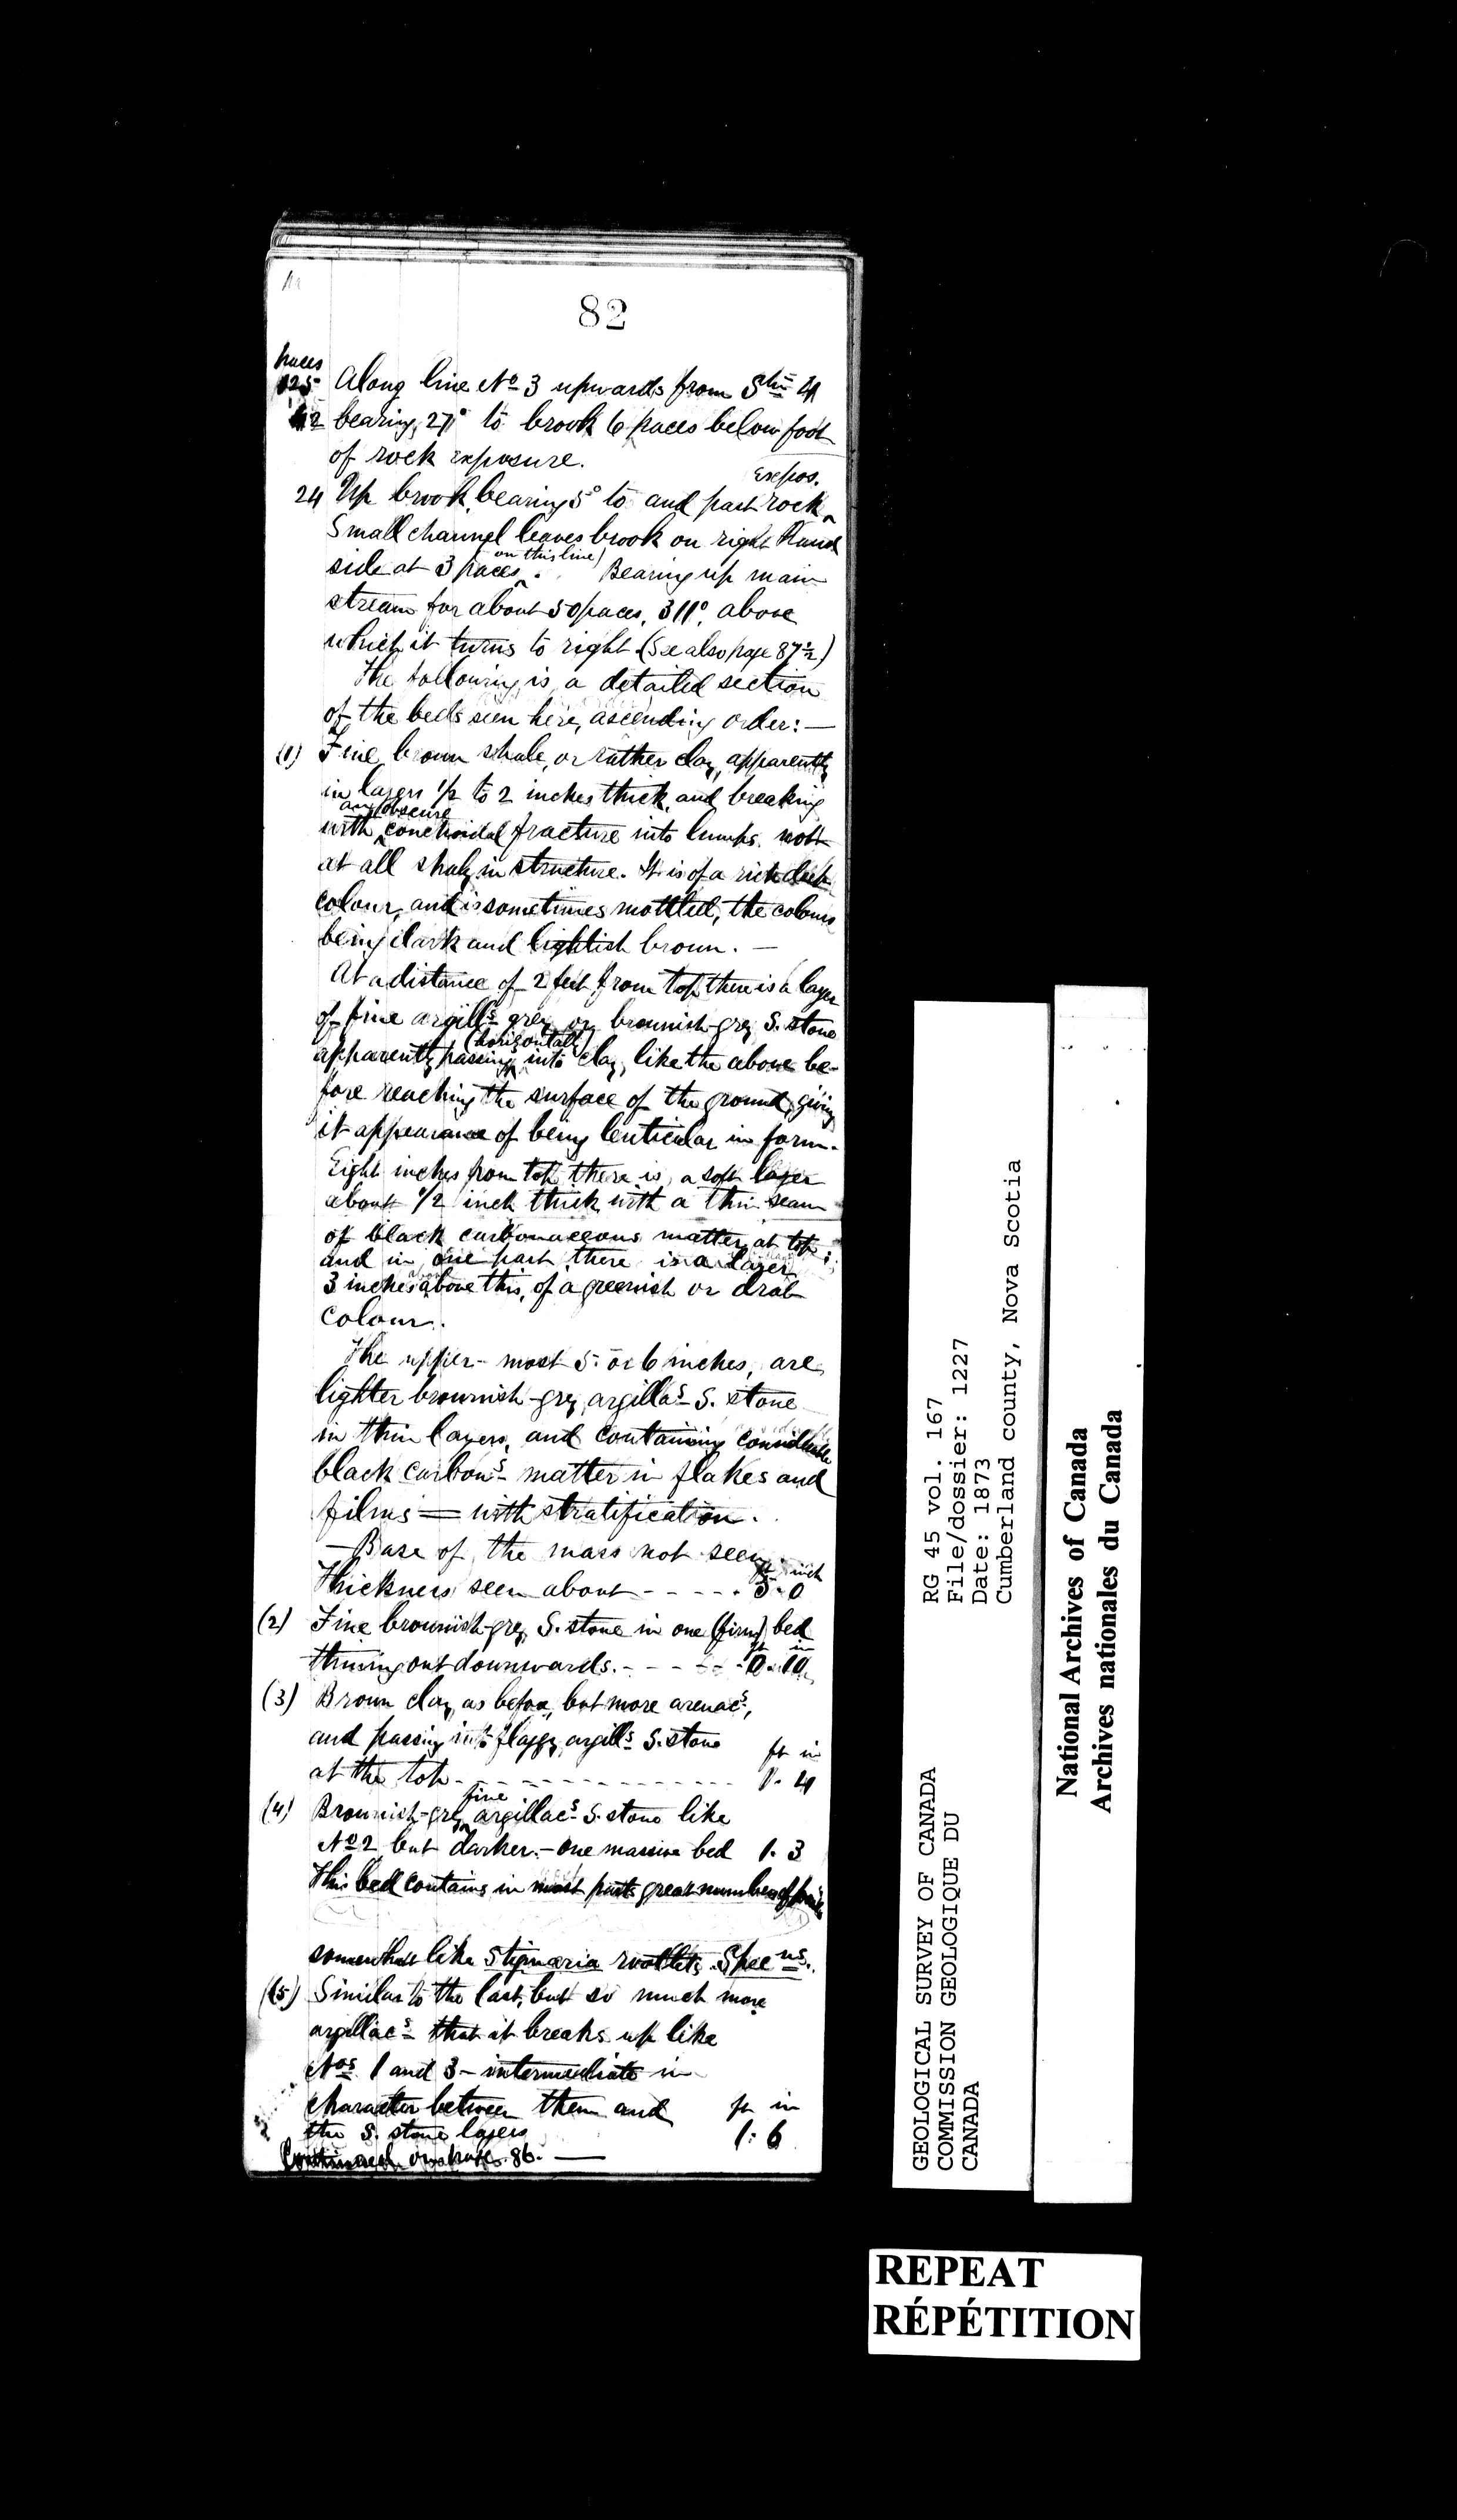 82
Paces
125 Along line No 3 upwards from Stn 4
42 bearing 27° to brook 6 paces below foot
of rock exposure.
Expos.
24 Up brook, bearing 5° to and past rock ^
Small channel leaves brook on right hand
(on this line)
side at 3 paces ^. Bearing up main
stream for about 50 paces, 311°, above
which it turns to right (See also page 87½)
The following is a detailed section
of the beds seen here, ascending order:—
(1) Fine brown shale, or rather clay, apparently
in layers 1/2 to 2 inches thick, and breaking
an obscure
with ^ conchoidal fracture into lumps. not
at all shaly in structure. It is of a rich dark
colour, and is sometimes mottled, the colours
being dark and lightish brown. —
At a distance of 2 feet from top there is a layer
of fine argills grey or brownish-grey S. stone
(horizontally)
apparently passing ^ into clay, like the above be-
fore reaching the surface of the ground, giving
it appearance of being lenticular in form.
Eight inches from top there is, a soft layer
about 1/2 inch thick with a thin seam
of black carbonaceous matter at top;
and in one part there is a layer
3 inches above this, of a greenish or drab
colour.
The upper-most 5 or 6 inches, are
lighter brownish-grey argillas S. stone
in thin layers, and containing considerable
black carbons matter in flakes and
films = with stratification.
— Base of the mass not seen.
ft inch
Thickness seen about - - - - - 5. 0
(2) Fine brownish-grey S. stone in one (firm) bed
ft in
thining out downwards. - - - - - 0. 10
(3) Brown clay, as before, but more arenacs,
and passing into flaggy argills S. stone
ft in
at the top - - - - - - - - - - - - 1. 4
fine
(4) Brownish-grey ^ argillacs S. stone like
No 2 but darker. — one massive bed 1. 3
This bed contains in most parts great number of
somewhat like Stigmaria rootlets. Specns.
(5) Similar to the last, but so much more
argillacs that it breaks up like
Nos 1 and 3 — intermediate in
character between them and ft in
the S. stone layers 1. 6
Continued on page 86. —
RG 45 vol. 167
File/dossier: 1227
Date: 1873
Cumberland county, Nova Scotia
GEOLOGICAL SURVEY OF CANADA
COMMISSION GEOLOGIQUE DU
CANADA
National Archives of Canada
Archives nationales du Canada
REPEAT
RÉPÉTITION